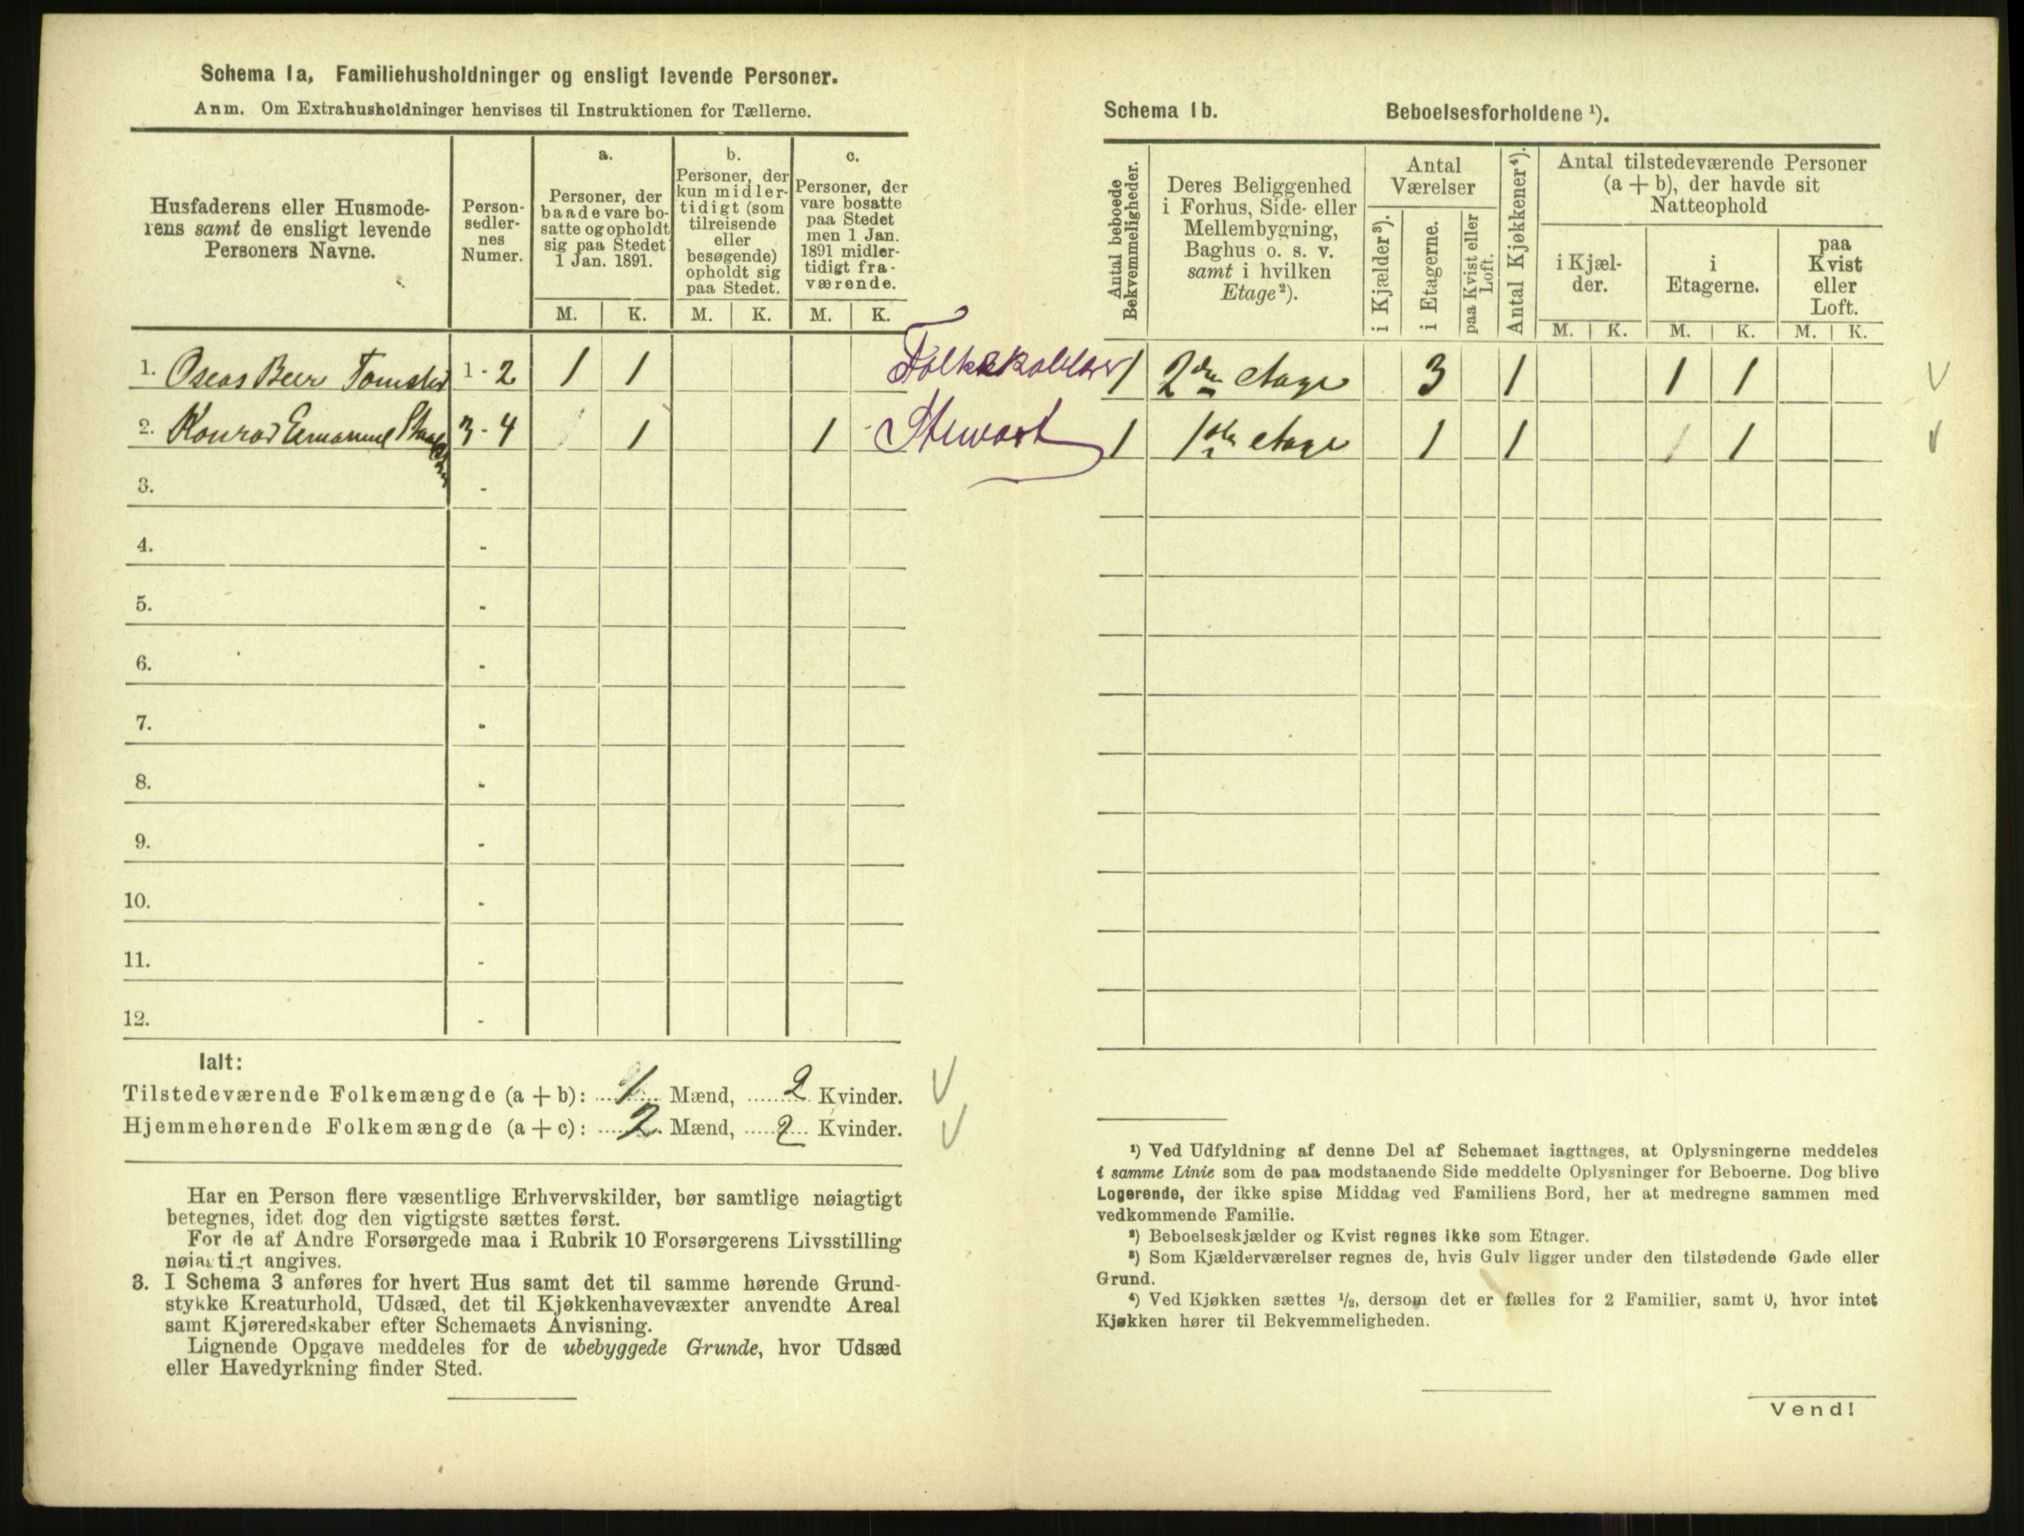 Schema 1a, Familiehusholdninger og ensligt levende Personer.
Anm. Om Extrahusholdninger henvises til Instruktionen for Tællerne.
Husfaderens eller Husmode-
rens samt de ensligt levende
Personers Navne.
Person-
sedler-
nes
Numer.
a.
Personer, der
baade vare bo-
satte og opholdt
sig paa Stedet
1 Jan. 1891.
b.
Personer, der
kun midler-
tidigt (som
tilreisende
eller
besøgende)
opholdt sig
paa Stedet.
c.
Personer, der
vare bosatte
paa Stedet
men 1 Jan.
1891 midler-
tidigt fra-
værende.
M. K. M. K. M. K.
1. Oscas Beer 1 - 2 1 1
2. Konrad Emanuel 3 - 4 1 1 Stewart
3. -
4. -
5. -
6. -
7. -
8. -
9. -
10. -
11. -
12. -
Ialt:
Tilstedeværende Folkemængde (a + b): 1 Mænd, 2 Kvinder.
Hjemmehørende Folkemængde (a + c): 2 Mænd, 2 Kvinder.
Har en Person flere væsentlige Erhvervskilder, bør samtlige nøiagtigt
betegnes, idet dog den vigtigste sættes først.
For de af Andre Forsørgede maa i Rubrik 10 Forsørgerens Livsstilling
nøiagtigt angives.
3. I Schema 3 anføres for hvert Hus samt det til samme hørende Grund-
stykke Kreaturhold, Udsæd, det til Kjøkkenhavevæxter anvendte Areal
samt Kjøreredskaber efter Schemaets Anvisning.
Lignende Opgave meddeles for de ubebyggede Grunde, hvor Udsæd
eller Havedyrkning finder Sted.
Schema 1b. Beboelsesforholdene ¹).
Antal beboede
Bekvemmeligheder.
Deres Beliggenhed
i Forhus, Side- eller
Mellembygning,
Baghus o. s. v.
samt i hvilken
Etage²).
Antal
Værelser
i Kjælder³).
i Etagerne.
paa Kvist eller
Loft.
Antal Kjøkkener⁴).
Antal tilstedeværende Personer
(a + b), der havde sit
Natteophold
i Kjæl-
der.
i
Etagerne.
paa
Kvist
eller
Loft.
M. K. M. K. M. K.
1 2den etage 3 1 1 1
1 1ste etage 1 1 1
¹) Ved Udfyldning af denne Del af Schemaet iagttages, at Oplysningerne meddeles
i samme Linie som de paa modstaaende Side meddelte Oplysninger for Beboerne. Dog blive
Logerende, der ikke spise Middag ved Familiens Bord, her at medregne sammen med
vedkommende Familie.
²) Beboelseskjælder og Kvist regnes ikke som Etager.
³) Som Kjælderværelser regnes de, hvis Gulv ligger under den tilstødende Gade eller
Grund.
⁴) Ved Kjøkken sættes ½, dersom det er fælles for 2 Familier, samt 0, hvor intet
Kjøkken hører til Bekvemmeligheden.
Vend!